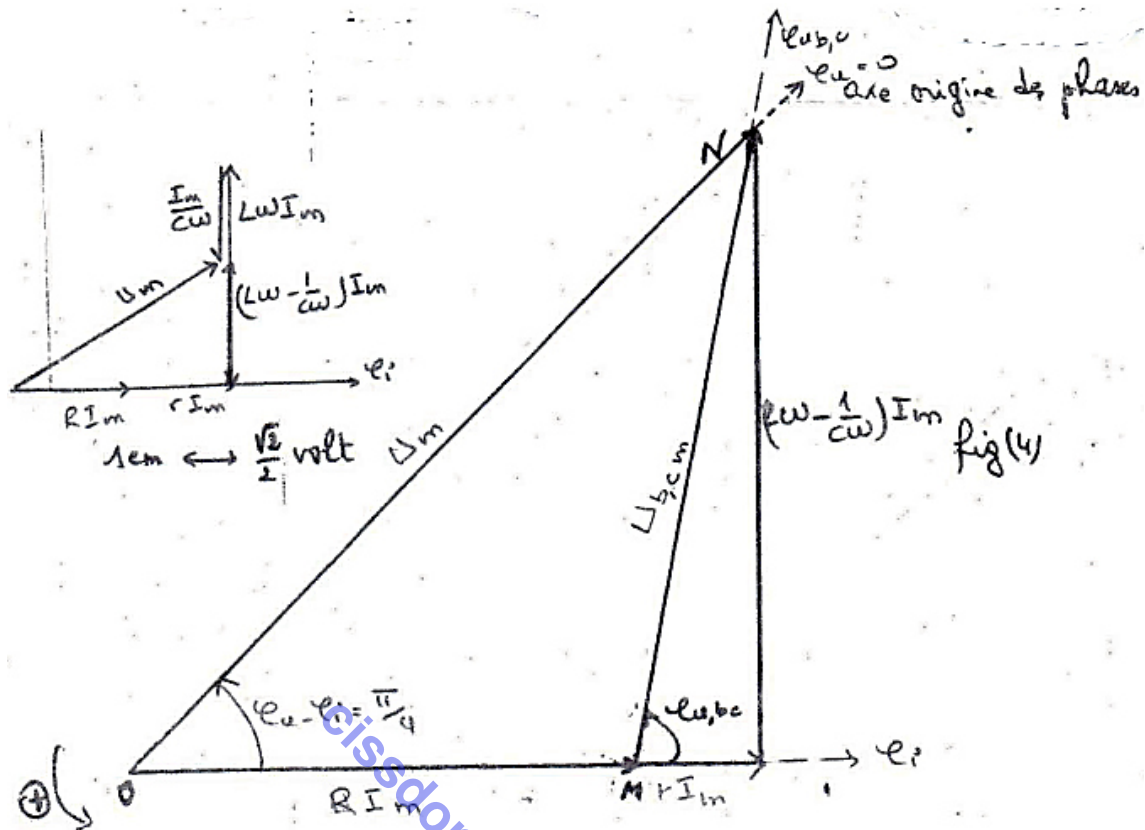 φub,c
φu=0
axe origine des phases
N
Im/Cω
LωIm
Um
(Lω-1/Cω)Im
φi
RIm
rIm
1cm ⟷ √2/2 volt
Um
Ub,cm
(Lω-1/Cω)Im
fig(4)
φu-φi=π/4
φu,bc
φi
⊕
O
RIm
M
rIm
cissdon